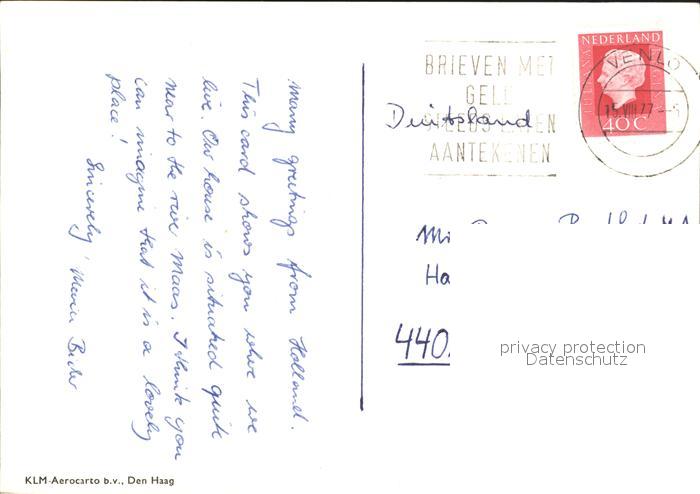 Many greetings from Holland.
This card shows you where we
live. Our house is situated quite
near to the rive Maas. I think you
can imagine that it is a lovely
place!
Sincerely, Maria
KLM-Aerocarto b.v., Den Haag
BRIEVEN MET
GELD
STEEDS LATEN
AANTEKENEN
Deutsland
NEDERLAND
JULIANA
40C
VENLO
15 VIII 77
Mi
Ha
440.
privacy protection
Datenschutz